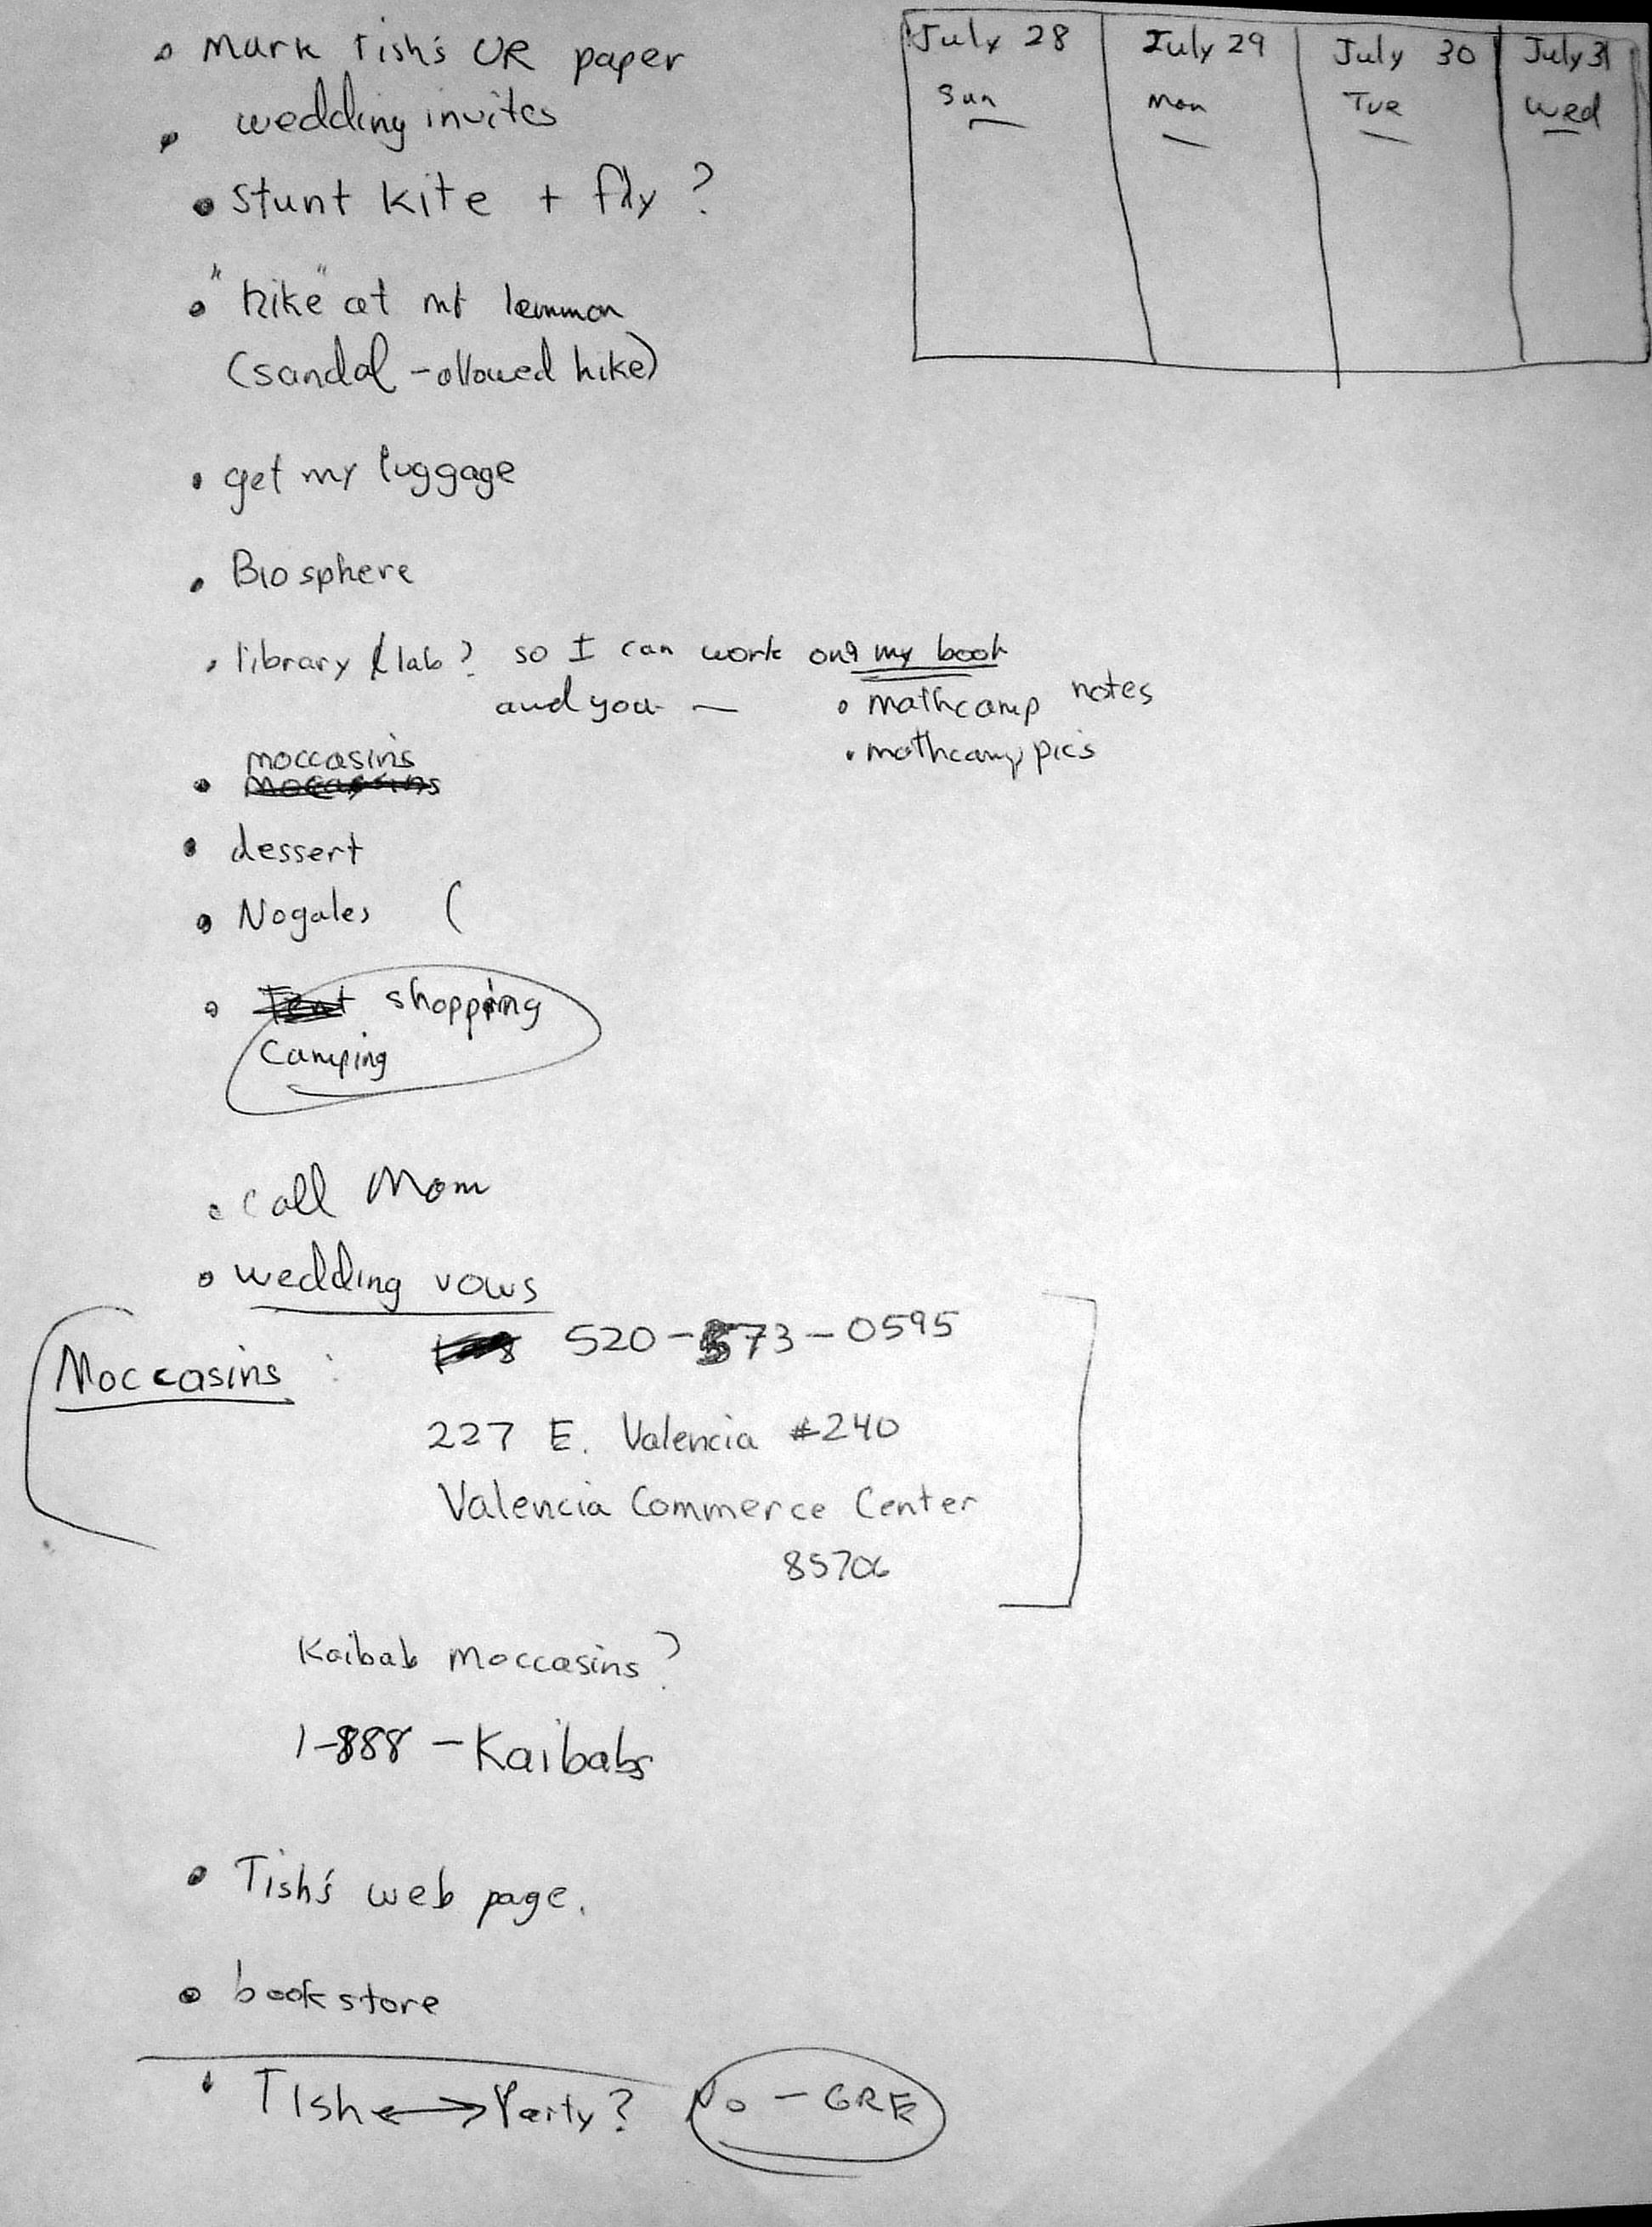 Mark Tish's UR paper
wedding invites
stunt kite + fly ?
"hike" at mt lemmon
(sandal-allowed hike)
get my luggage
Biosphere
library / lab? so I can work on my book
and you —
mathcamp notes
mathcamp pics
moccasins
mocassins
dessert
Nogales (
Tent shopping
camping
call Mom
wedding vows
Moccasins : 520-573-0595
227 E. Valencia #240
Valencia Commerce Center
85706
Kaibab moccasins?
1-888-Kaibabs
Tish's web page.
bookstore
Tish ↔ Party? No - GRE
July 28 July 29 July 30 July 31
Sun Mon Tue Wed